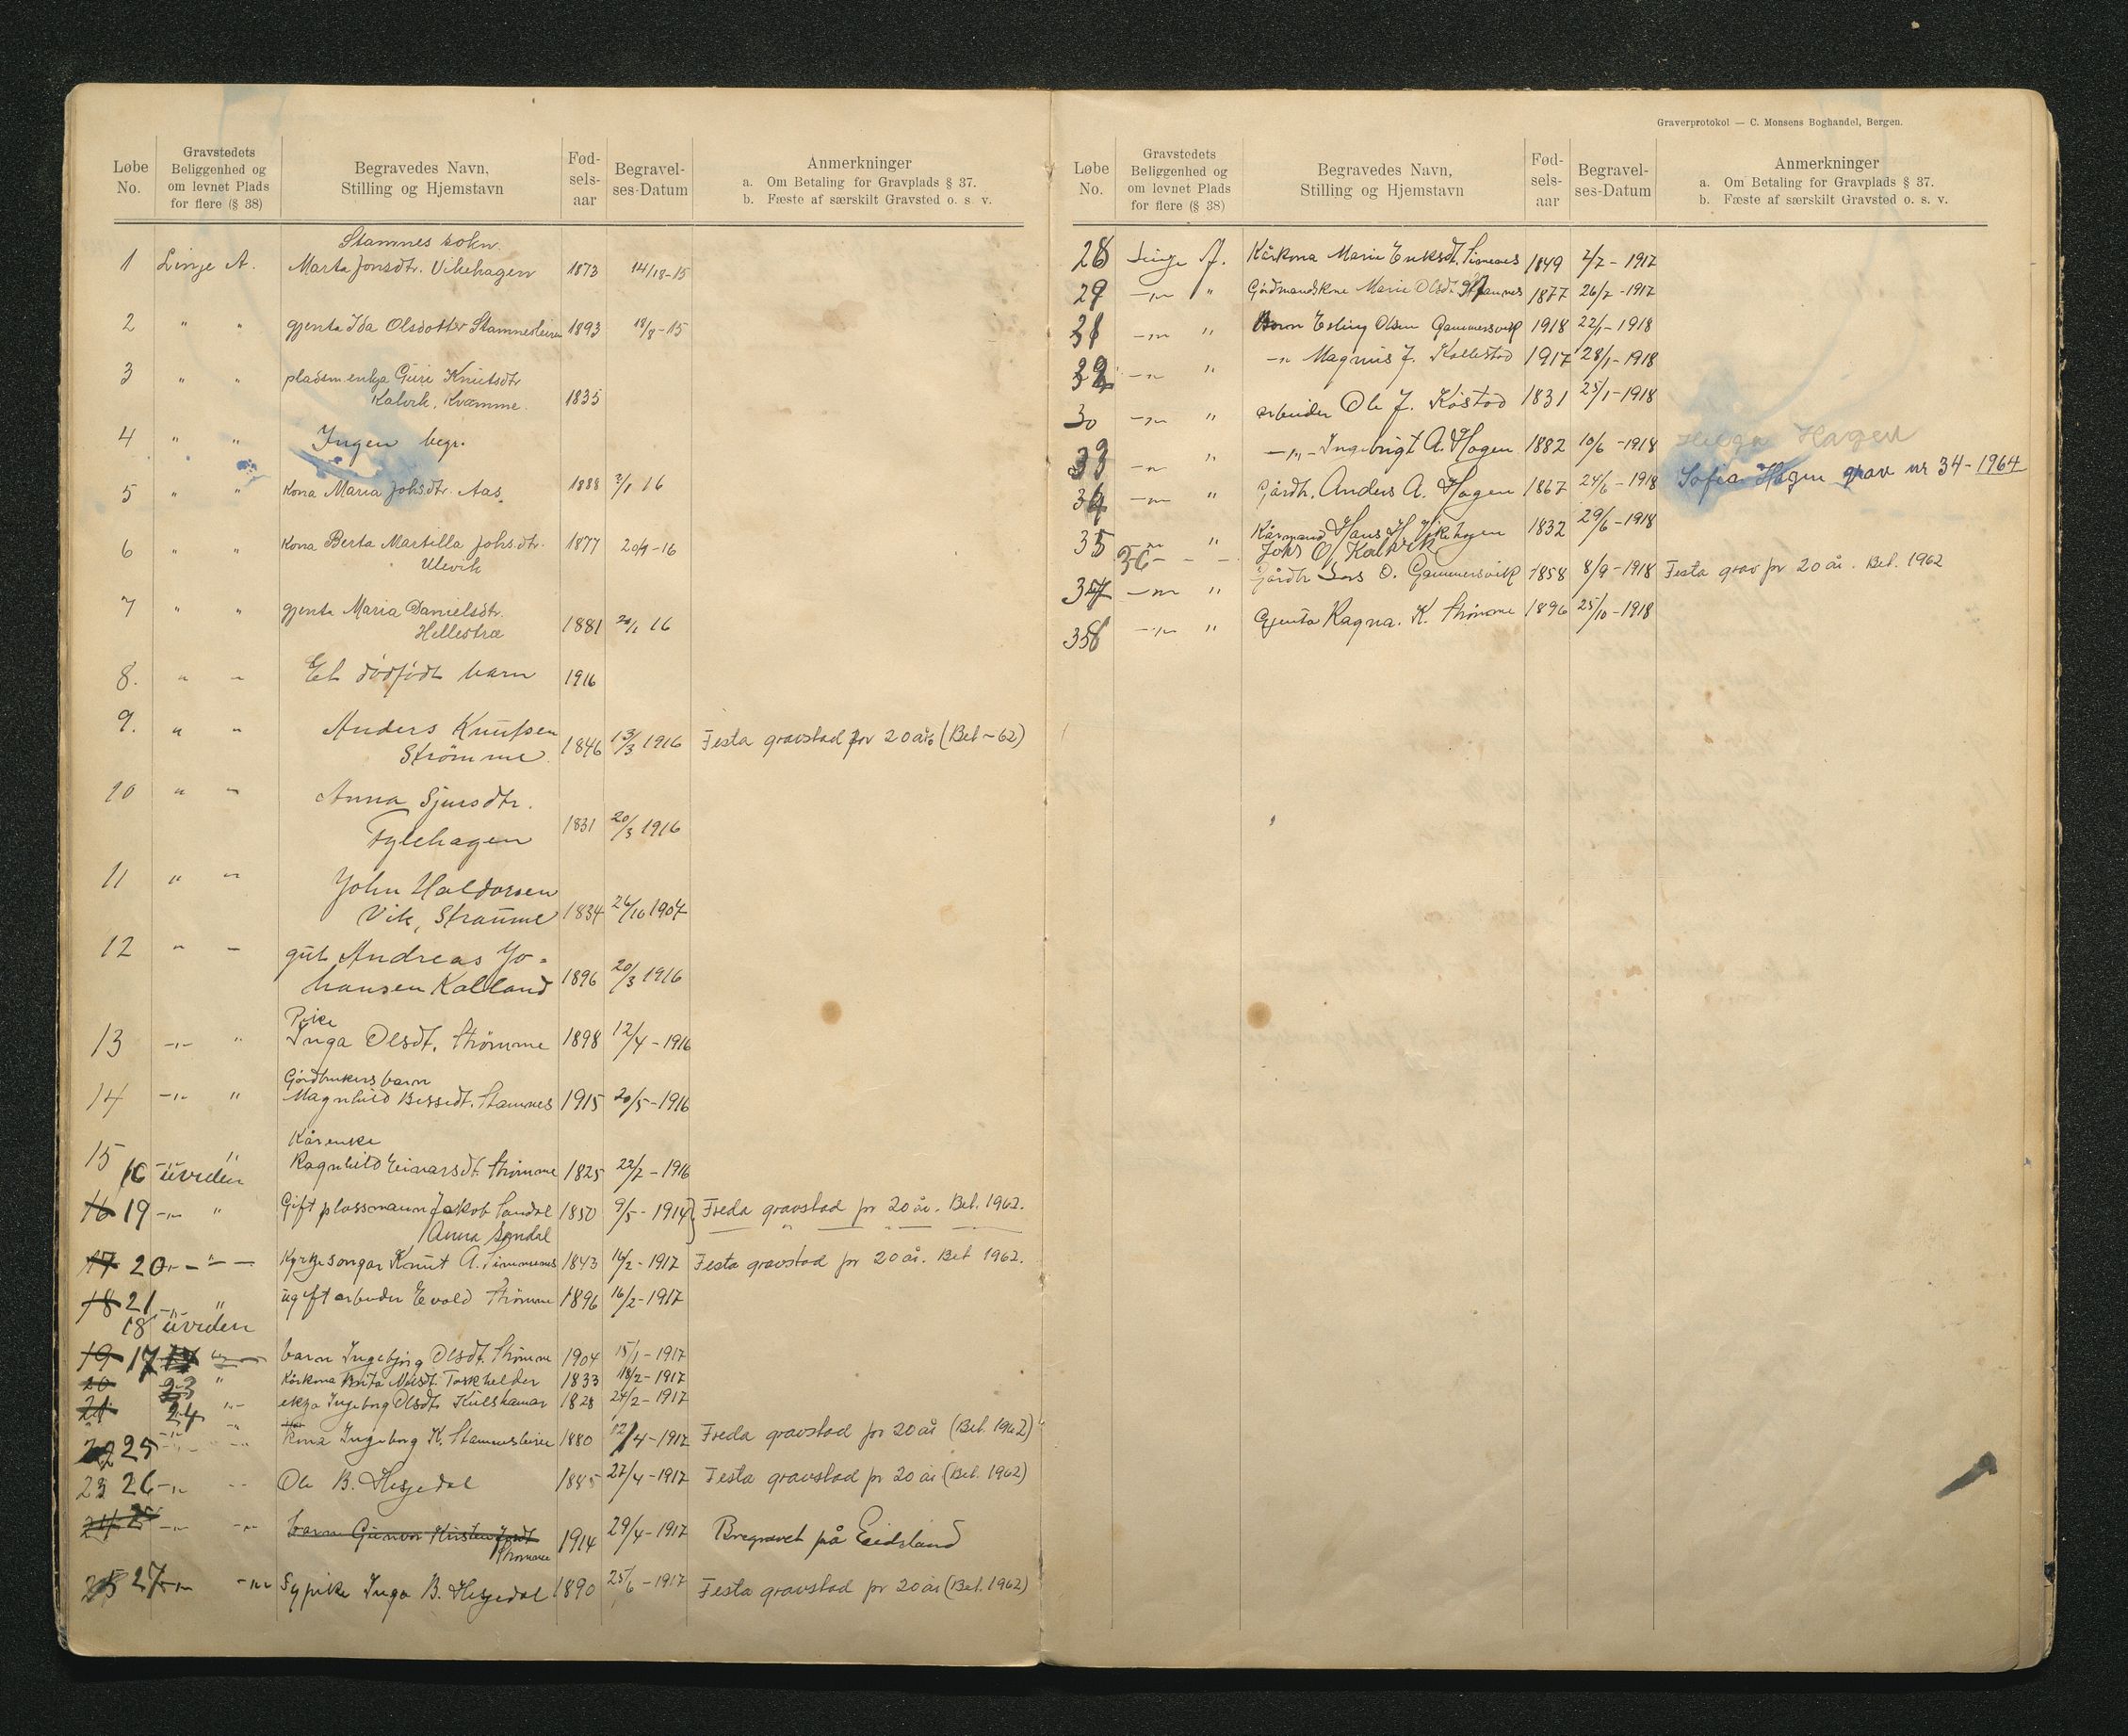 Løbe No. Gravstedets Beliggenhed og om levnet Plads for flere (§ 38) Begravedes Navn, Stilling og Hjemstavn Fød-sels-aar Begravel-ses-Datum Anmerkninger
a. Om Betaling for Gravplads § 37.
b. Fæste af særskilt Gravsted o. s. v.
Stamnes sokn.
1 Linje A. Marta Jonsdtr. Vikehagen 1873 14/18-15
2 " " gjenta Ida Olsdotter Stamnesleiren 1893 18/8-15
3 " " pladsm enkja Guri Knutsdtr
Kalvik, Kvamme. 1835
4 " " Ingen begr.
5 " " Kona Maria Johsdtr. Aas. 1888 2/1 16
6 " " Kona Berta Martilla Johs.dtr.
Ulevik 1877 20/1-16
7 " " gjenta Maria Danielsdtr.
Hellestræ 1881 20/1 16
8. " " Et dødfødt barn 1916
9. " " Anders Knutsen
Strømme. 1846 13/3 1916 Festa gravstad for 20 år (Bet-62)
10 " " Anna Sjursdtr.
Fylehagen 1831 20/3 1916
11 " " John Haldorsen
Vik, Straume 1834 26/10 1907
12 " " gut Andreas Jo-
hansen Kalland 1896 20/3 1916
Pike
13 -"- " Inga Olsdt. Strømme 1898 12/4-1916
Gårdbrukers barn
14 -"- " Magnhild Bessedt. Stamnes 1915 20/5-1916
Kårenke
15 -"- " Ragnhild Einarsdt. Strømme 1825 22/7-1916
16 uvreden
16 19 -"- " Gift plassmann Jakob Sandal 1850 9/5-1914 Freda gravstad pr 20 år. Bet. 1962.
Anna Sandal
17 20 -"- Kyrkjesongar Knut A. Simmenes 1843 16/2-1917 Festa gravstad pr 20 år. Bet 1962.
18 21 -"- " ugift arbeider Evald Strømme 1896 16/2-1917
18 uvreden
19 17 barn Ingebjørg Olsdt. Strømme 1904 15/1-1917
20 23 " Kårkona Brita Nilsdt. 1833 18/2-1917
21 24 "- ekja Ingeborg Olsdt. Kulshamar 1828 24/2-1917
22 25 -"- kona Ingeborg K. Stamnesleiren 1880 12/4-1917 Freda gravstad for 20 år (Bet. 1962)
23 26 -"- Ole B. Hesjedal 1885 27/4-1917 Festa gravstad pr 20 år (Bet. 1962)
24 25 -"- -"- barn Gunvor Kirsten
Strømme 1914 29/4-1917 Bregravet på Eidsland
25 27 -"- -"- Sypike Inga B. Hesjedal 1890 25/6-1917 Festa gravstad pr 20 år (Bet. 1962)
Graverprotokol — C. Monsens Boghandel, Bergen.
Løbe No. Gravstedets Beliggenhed og om levnet Plads for flere (§ 38) Begravedes Navn, Stilling og Hjemstavn Fød-sels-aar Begravel-ses-Datum Anmerkninger
a. Om Betaling for Gravplads § 37.
b. Fæste af særskilt Gravsted o. s. v.
28 Linje A. Kårkona Marie Eriksdt. Simenes 1849 2/7-1917
29 -"- " Gårdmandskne Marie Olsdt. Stamnes 1877 26/7-1917
31 -"- " Barn Erling Olsen Gammersvik 1918 22/1-1918
32 -"- " -"- Magnus J. Kallestad 1917 28/1-1918
30 -"- " arbeider Ole J. Kåstad 1831 25/1-1918
33 -"- " -"- Ingebrigt A. Hagen 1882 10/6-1918 Helga Hagen
34 -"- " Gårdbr. Anders A. Hagen 1867 24/6-1918 Sofia Hagen grav nr 34-1964
35 -"- " Kårmand Hans H. Vikehagen 1832 29/6-1918
36 - - - Johs O. Kalvik
37 -"- " Gårdbr Lars O. Gammersvik 1858 8/9-1918 Festa grav pr 20 år. Bet. 1962
38 -"- " Gjenta Ragna. K. Strømme 1896 25/10-1918